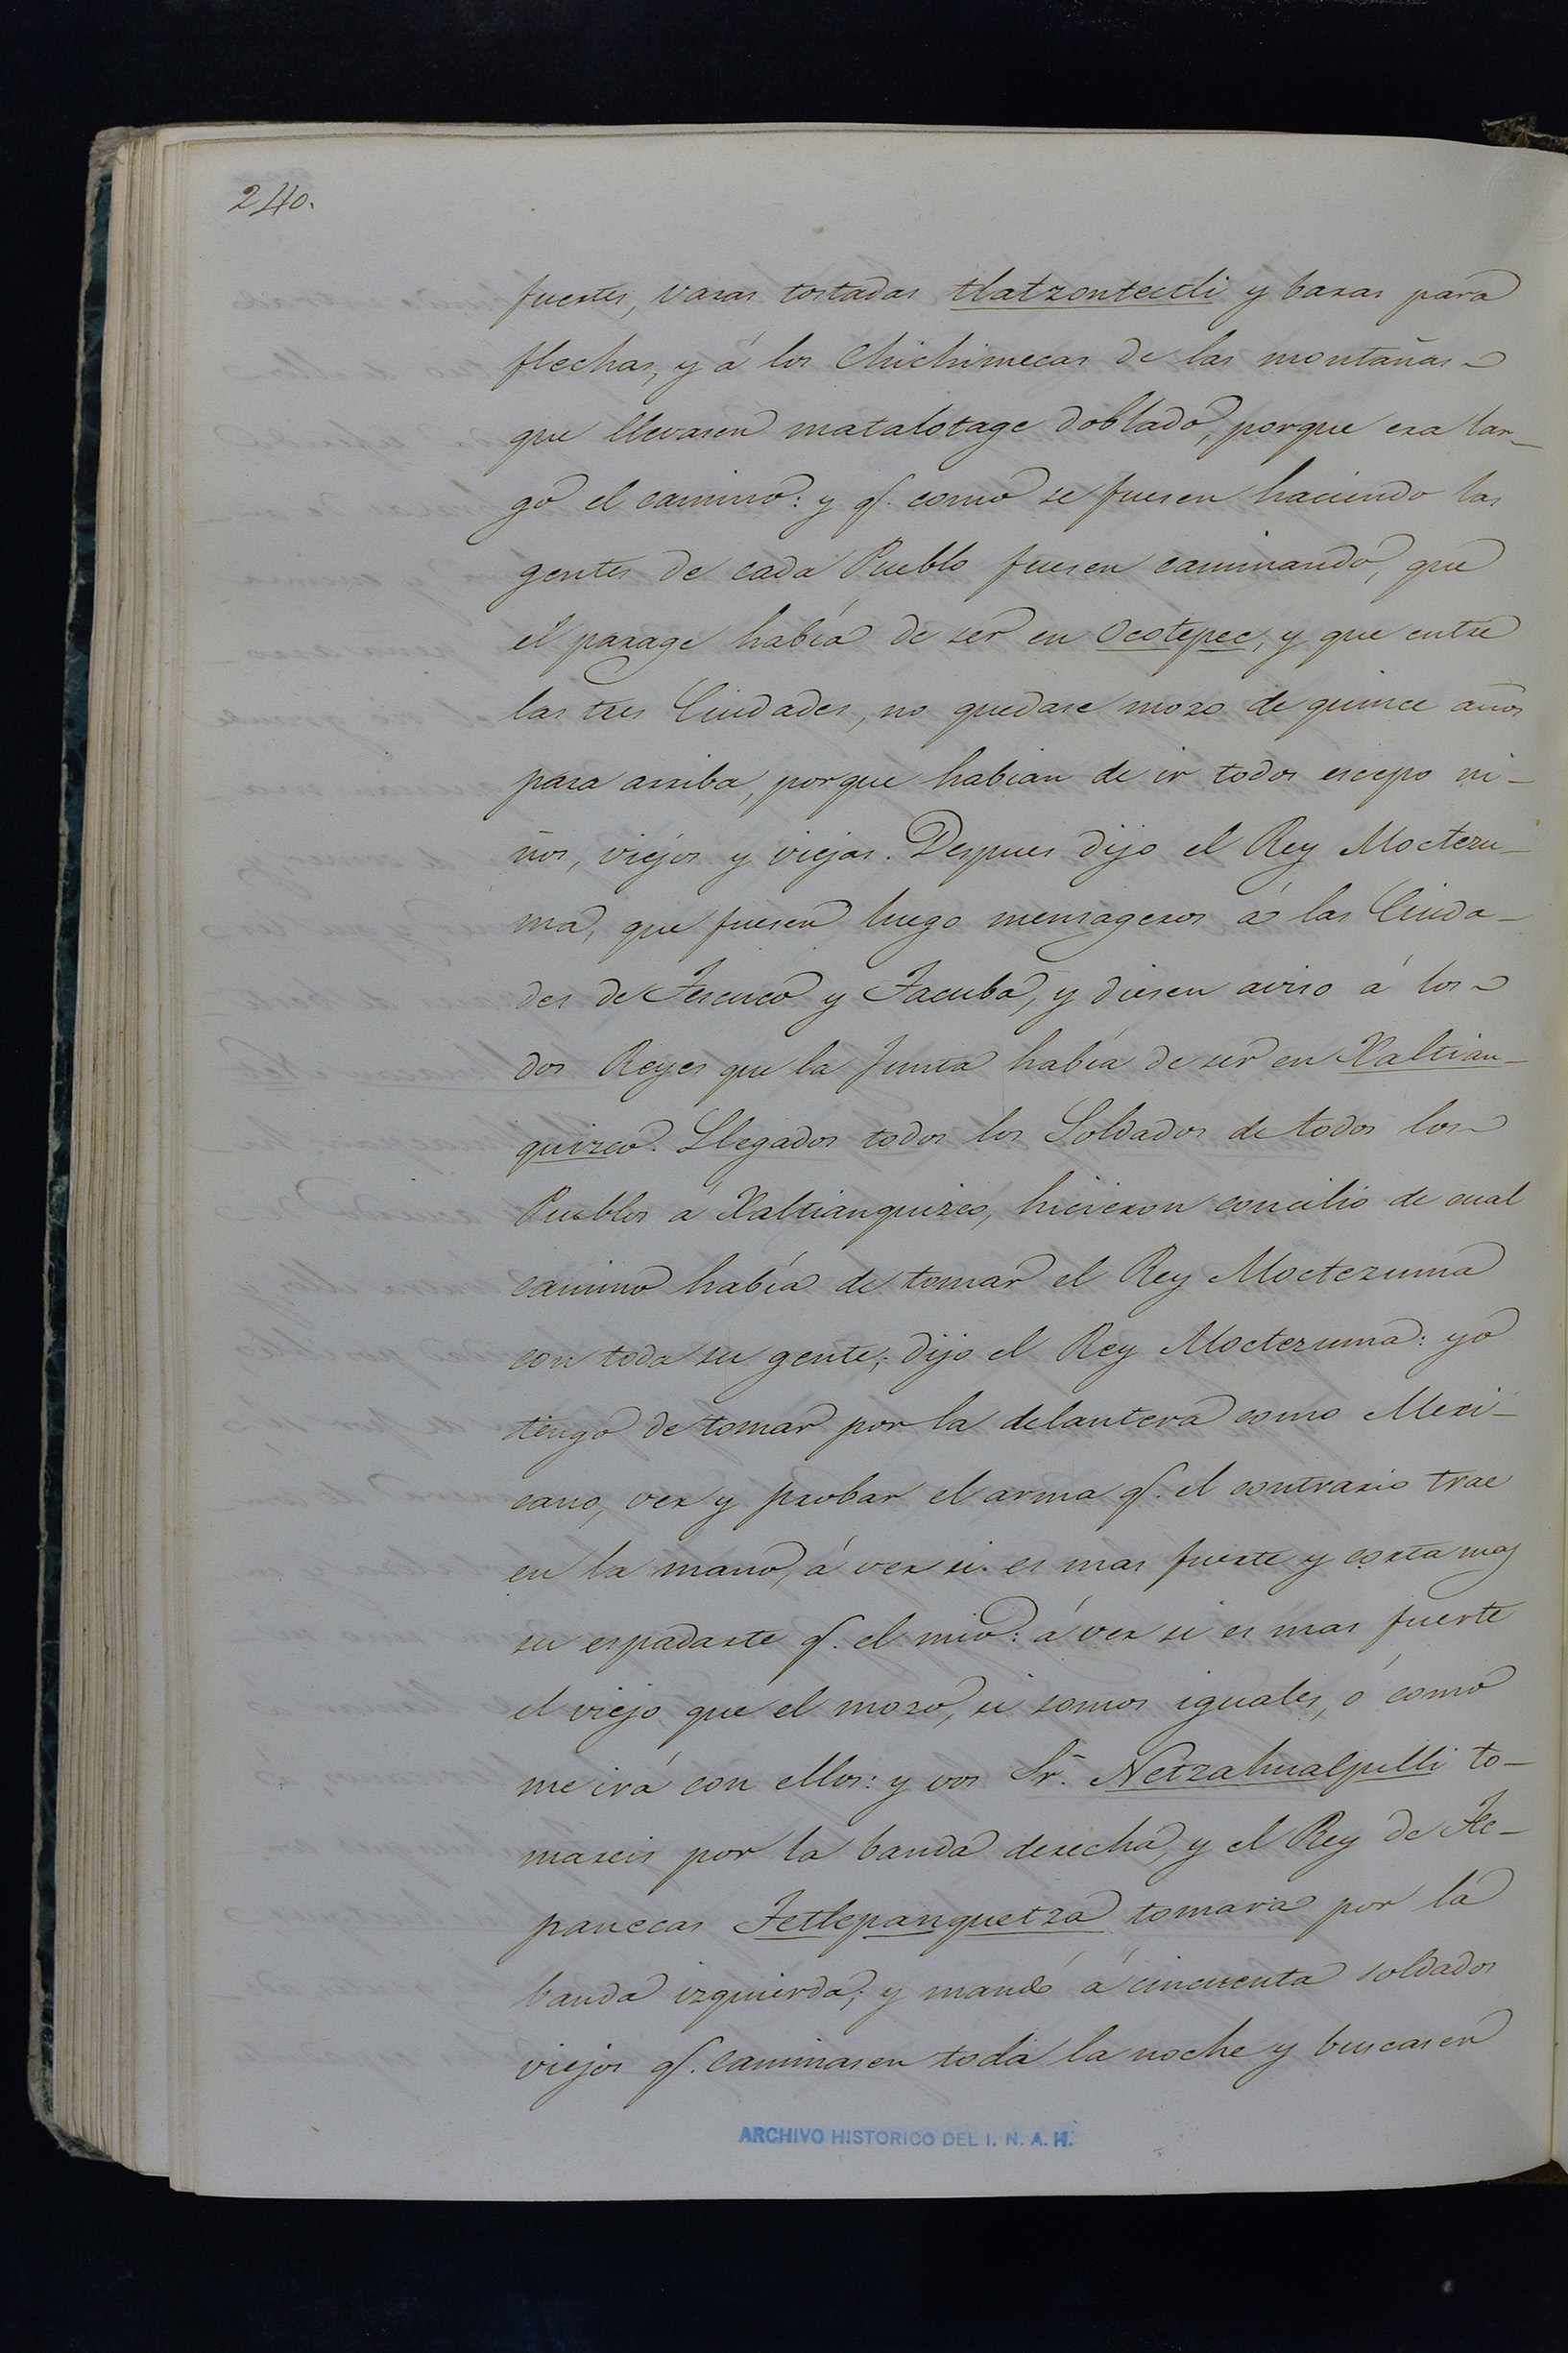 240.
fuertes, varas tostadas tlatzontectli y baras para
flechas, y á los Chichimecas de las montañas
que llevasen matalotage doblado, porque era lar-
go el camino: y q. como se fuesen haciendo las
gentes de cada Pueblo fuesen caminando, que
el parage había de ser en Ocotepec, y que entre
las tres Ciudades, no quedase mozo de quince años
para arriba, porque habian de ir todos escepo ni-
ños, viejos y viejas. Despues dijo el Rey Moctezu-
ma, que fuesen luego mensageros á las Ciuda-
des de Tescuco y Tacuba, y diesen aviso á los
dos Reyes que la Junta había de ser en Xaltian-
quizco. Llegados todos los Soldados de todos los
Pueblos á Xaltianquizco, hicieron concilio de cual
camino había de tomar el Rey Moctezuma
con toda su gente; dijo el Rey Moctezuma: yo
tengo de tomar por la delantera como Mexi-
cano, ver y probar el arma q. el contrario trae
en la mano, á ver si es mas fuerte y corta mas
su espadarte q. el mio: á ver si es mas fuerte
el viejo que el mozo, si somos iguales, ó como
me irá con ellos: y vos Sr. Netzahualpilli to-
mareis por la banda derecha, y el Rey de Te-
panecas Tetlepanquetza tomara por la
banda izquierda; y mandó á cincuenta soldados
viejos q. caminasen toda la noche y buscasen
ARCHIVO HISTORICO DEL I. N. A. H.